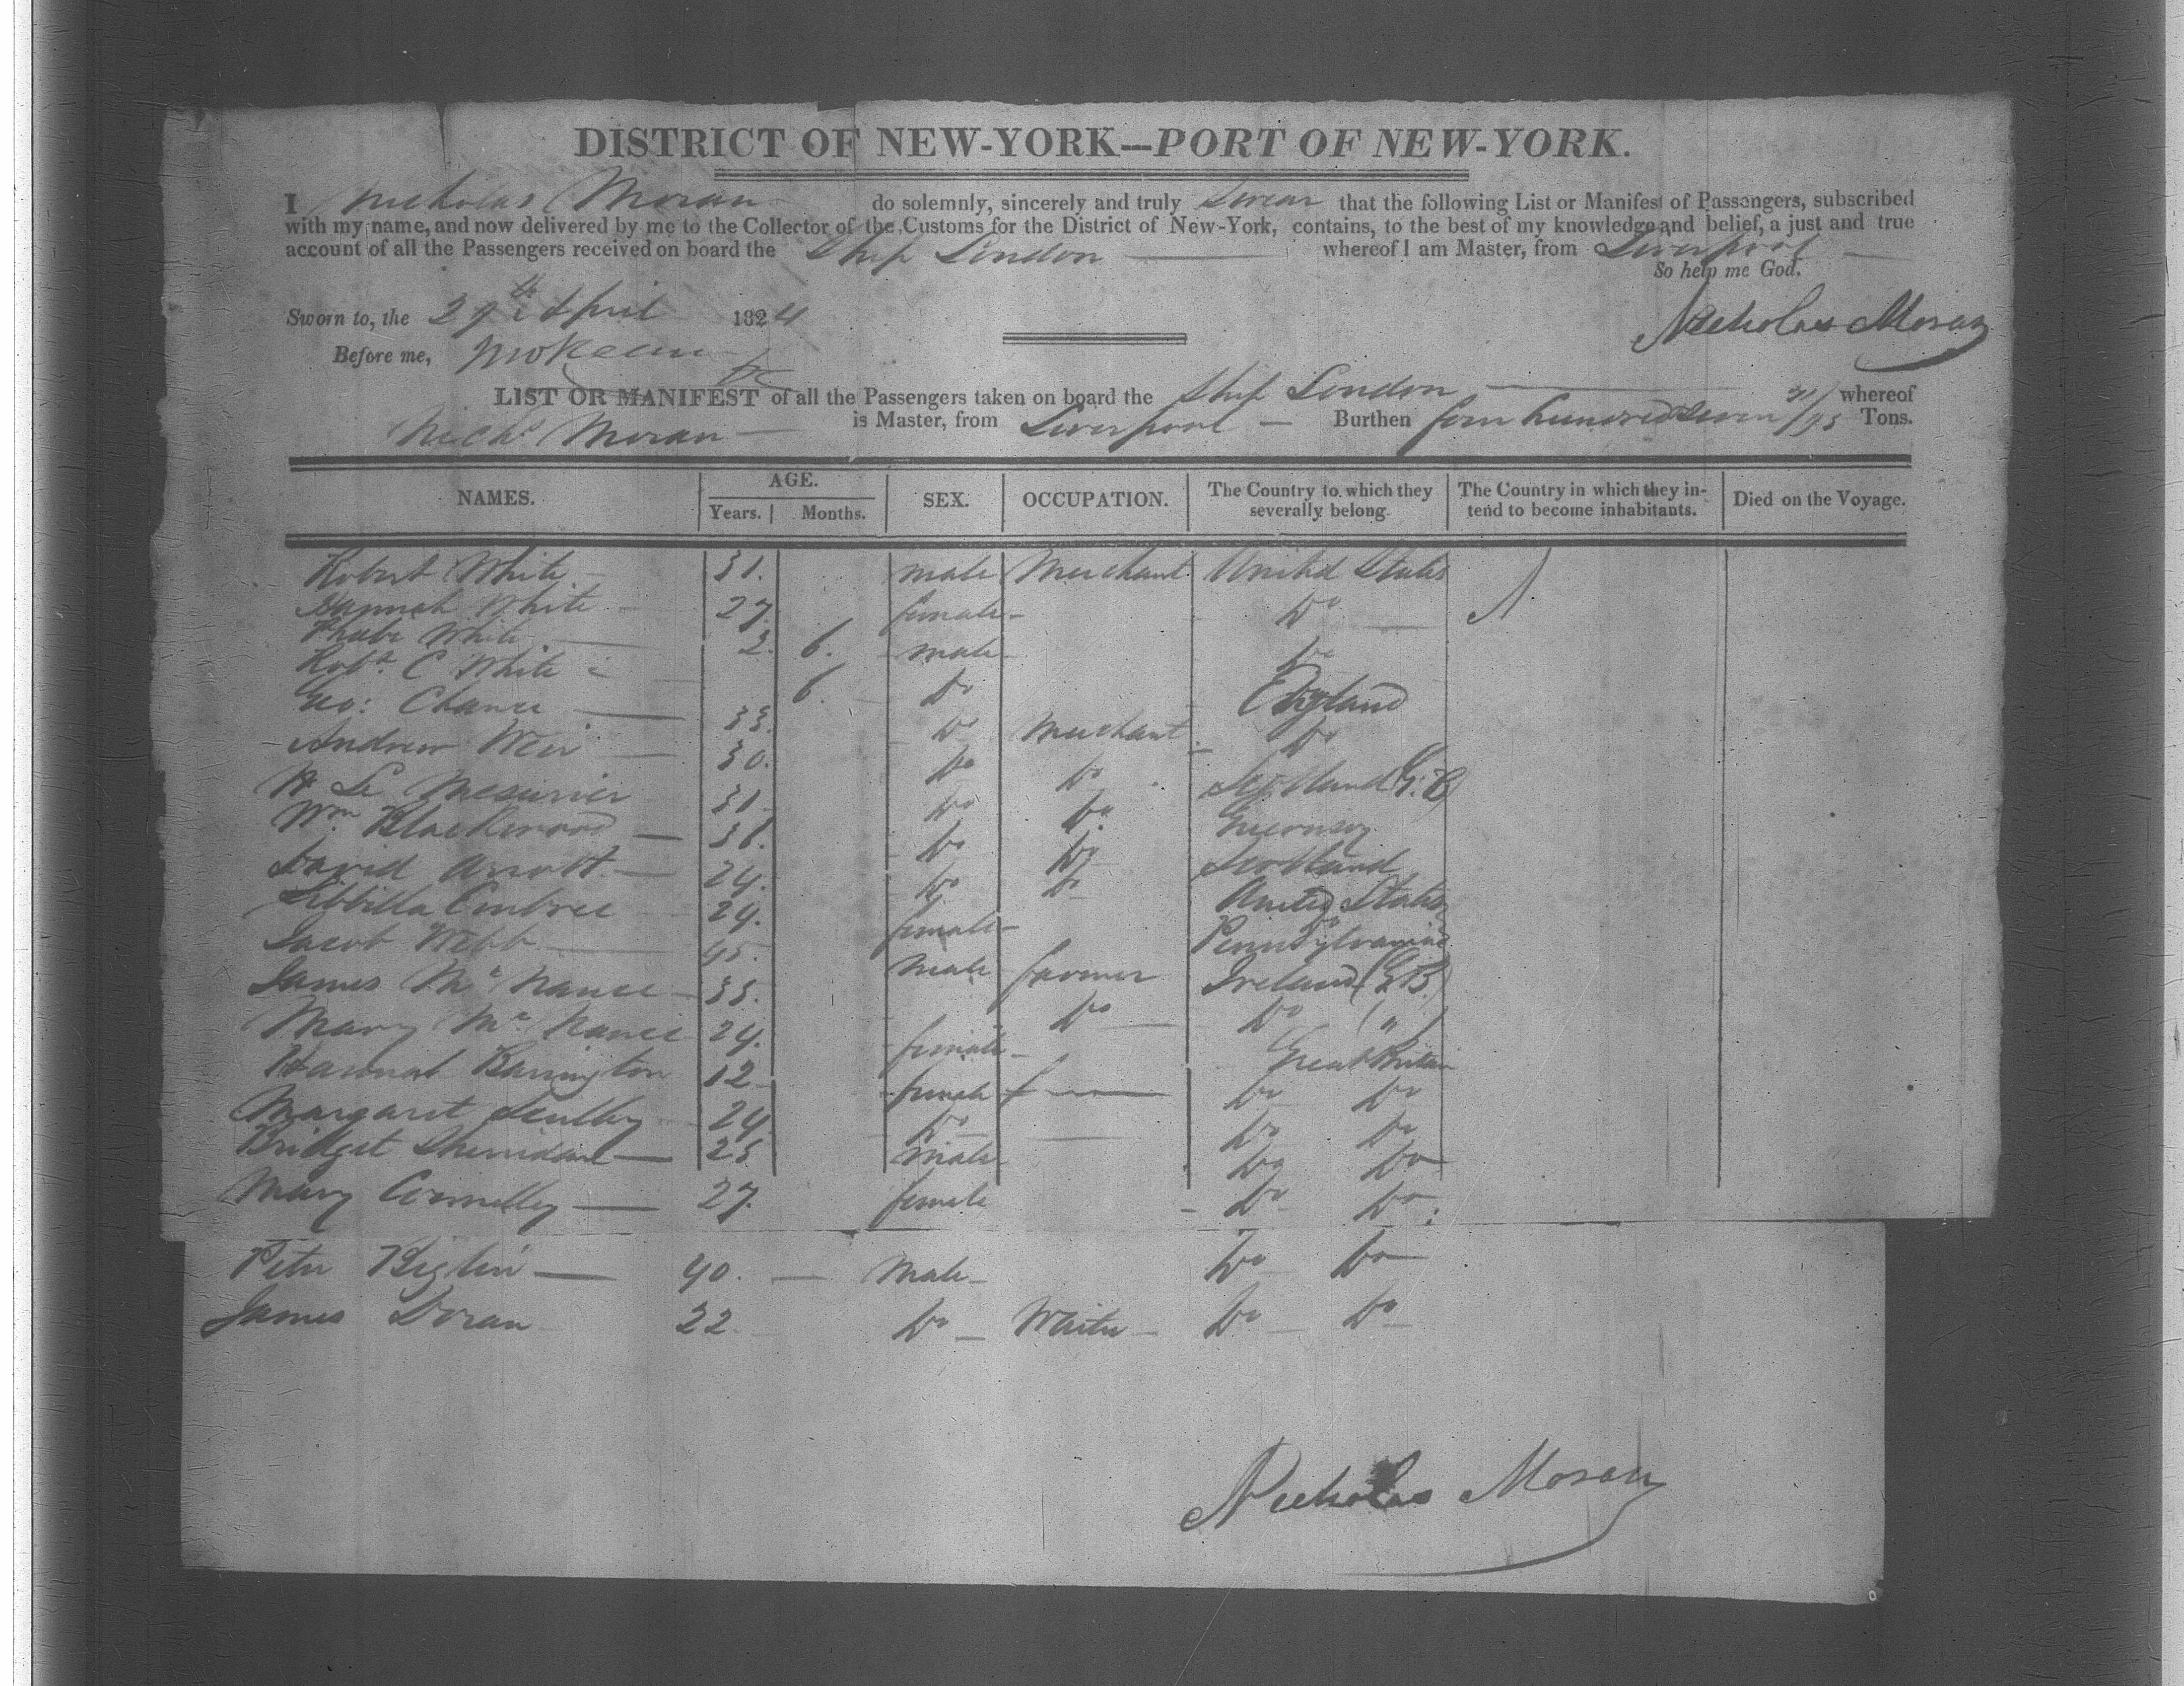 DISTRICT OF NEW-YORK—PORT OF NEW-YORK.
I Nicholas Moran do solemnly, sincerely and truly Swear that the following List or Manifest of Passengers, subscribed
with my name, and now delivered by me to the Collector of the Customs for the District of New-York, contains, to the best of my knowledge and belief, a just and true
account of all the Passengers received on board the Ship London whereof I am Master, from Liverpool
So help me God.
Sworn to, the 29th April 1824 Nicholas Moran
Before me,
LIST OR MANIFEST of all the Passengers taken on board the Ship London whereof
Nichs Moran is Master, from Liverpool — Burthen four hundred seven /95 Tons.
NAMES. AGE. Years. Months. SEX. OCCUPATION. The Country to which they severally belong. The Country in which they intend to become inhabitants. Died on the Voyage.
Robert White 31. male Merchant United States
Hannah White 27. female Do
Phube White 2. 6. male Do
Robt. C White 6. Do England
Geo: Chance 33. Do Merchant Do
Andrew Weir 30. Do Do Scotland G. B
H Le Mesurier 31 Do Do Guernsey
Wm Blackwood 36. Do Do Scotland
David Arrott 24. Do Do United States
Sibbilla Embree 24. female Pennsylvania
Jacob Webb 45. male farmer Ireland (G B.)
James Mc Nance 33. Do Do "
Mary Mc Nance 24. female Great Britain
Hannah Barrington 12 female Do Do
Margaret Scully 24 Do Do Do
Bridget Sherridan 25 male Do Do
Mary Connelly 27. female Do Do
Peter Biglin 40. Male Do Do
James Doran 22 Do Waiter Do Do
Nicholas Moran